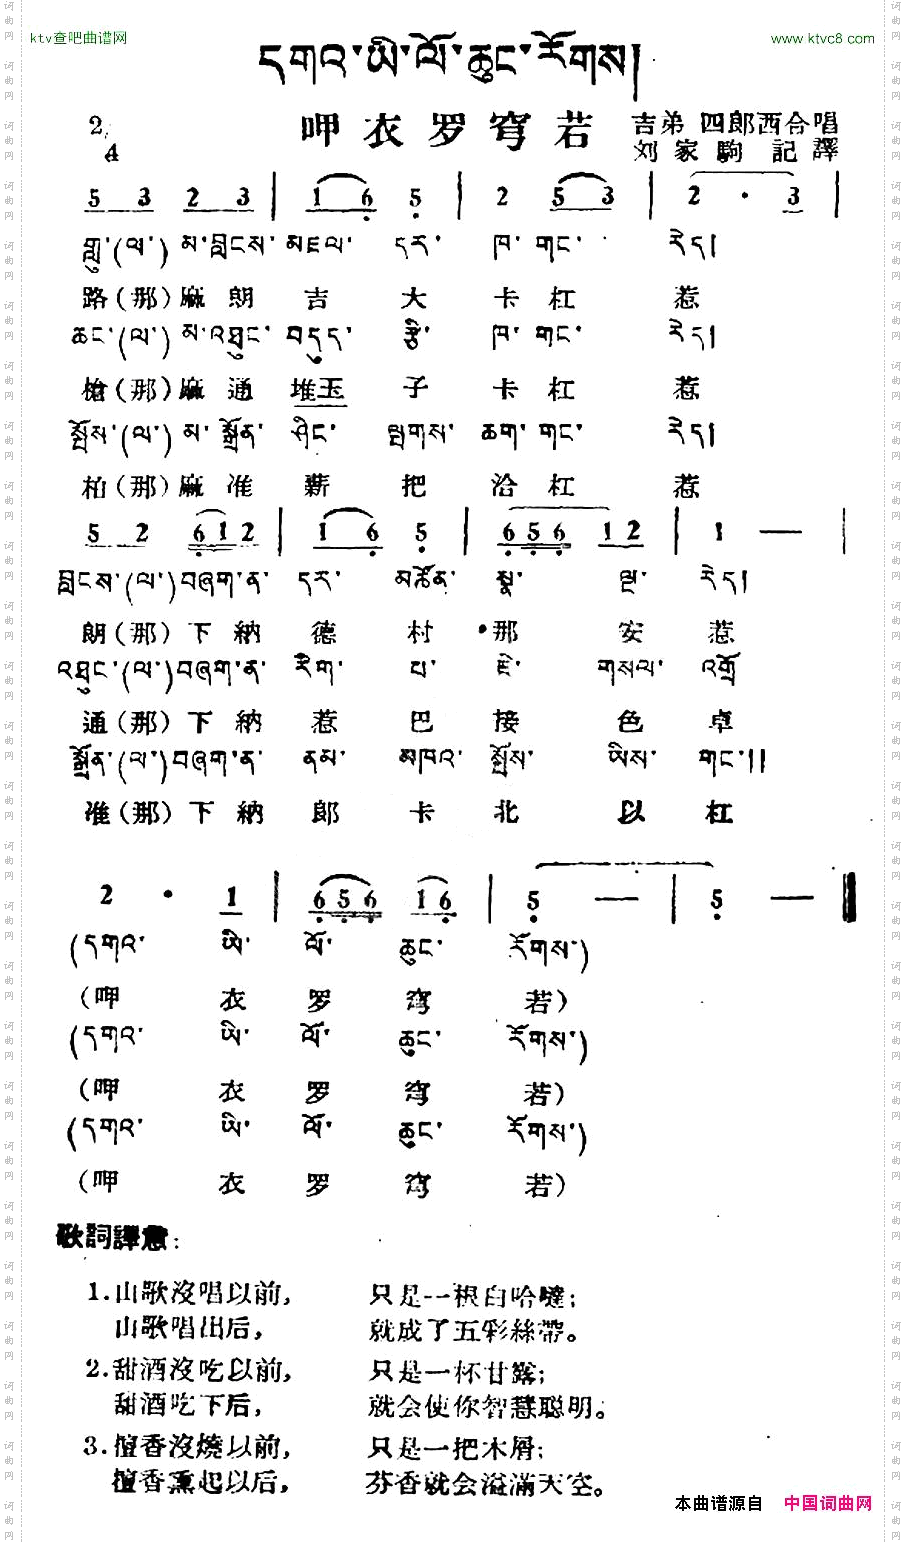 ktv查吧曲谱网 www.ktvc8.com
དགའ་ཡི་ལོ་ཆུང་རོགས།
2/4 呷衣罗穹若 吉弟 四郎西合唱
刘家駒 記譯
5 3 2 3 | 1 6 5 | 2 5 3 | 2 · 3 |
གླུ་(ལ་) མ་བླངས་ མཇལ་ དར་ ཁ་ གང་ རེད།
路(那)麻朗吉大卡杠惹
ཆང་(ལ་) མ་འཐུང་ བདུད་ རྩི་ ཁ་ གང་ རེད།
槍(那)麻通堆玉子卡杠惹
སྤོས་(ལ་) མ་ སྒྲོན་ ཤིང་ ལྤགས་ ཆག་ གང་ རེད།
柏(那)麻准薪把洽杠惹
5 2 6 1 2 | 1 6 5 | 6 5 6 1 2 | 1 — |
བླངས་(ལ་)བཞག་ན་ དར་ མཚོན་ སྣ་ ལྔ་ རེད།
朗(那)下納德村那安惹
འཐུང་(ལ་)བཞག་ན་ རིག་ པ་ ཇེ་ གསལ་ འགྲོ
通(那)下納惹巴接色卓
སྒྲོན་(ལ་)བཞག་ན་ ནམ་ མཁའ་ སྤོས་ ཡིས་ གང་།།
准(那)下納郎卡北以杠
2 · 1 | 6 5 6 1 6 | 5 — | 5 — ‖
(དགའ་ ཡི་ ལོ་ ཆུང་ རོགས་)
(呷衣罗穹若)
(དགའ་ ཡི་ ལོ་ ཆུང་ རོགས་)
(呷衣罗穹若)
(དགའ་ ཡི་ ལོ་ ཆུང་ རོགས་)
(呷衣罗穹若)
歌詞譯意:
1.山歌沒唱以前, 只是一根白哈噠;
山歌唱出后, 就成了五彩絲帶。
2.甜酒沒吃以前, 只是一杯甘露;
甜酒吃下后, 就会使你智慧聪明。
3.檀香沒燒以前, 只是一把木屑;
檀香熏起以后, 芬香就会溢滿天空。
本曲谱源自 中国词曲网